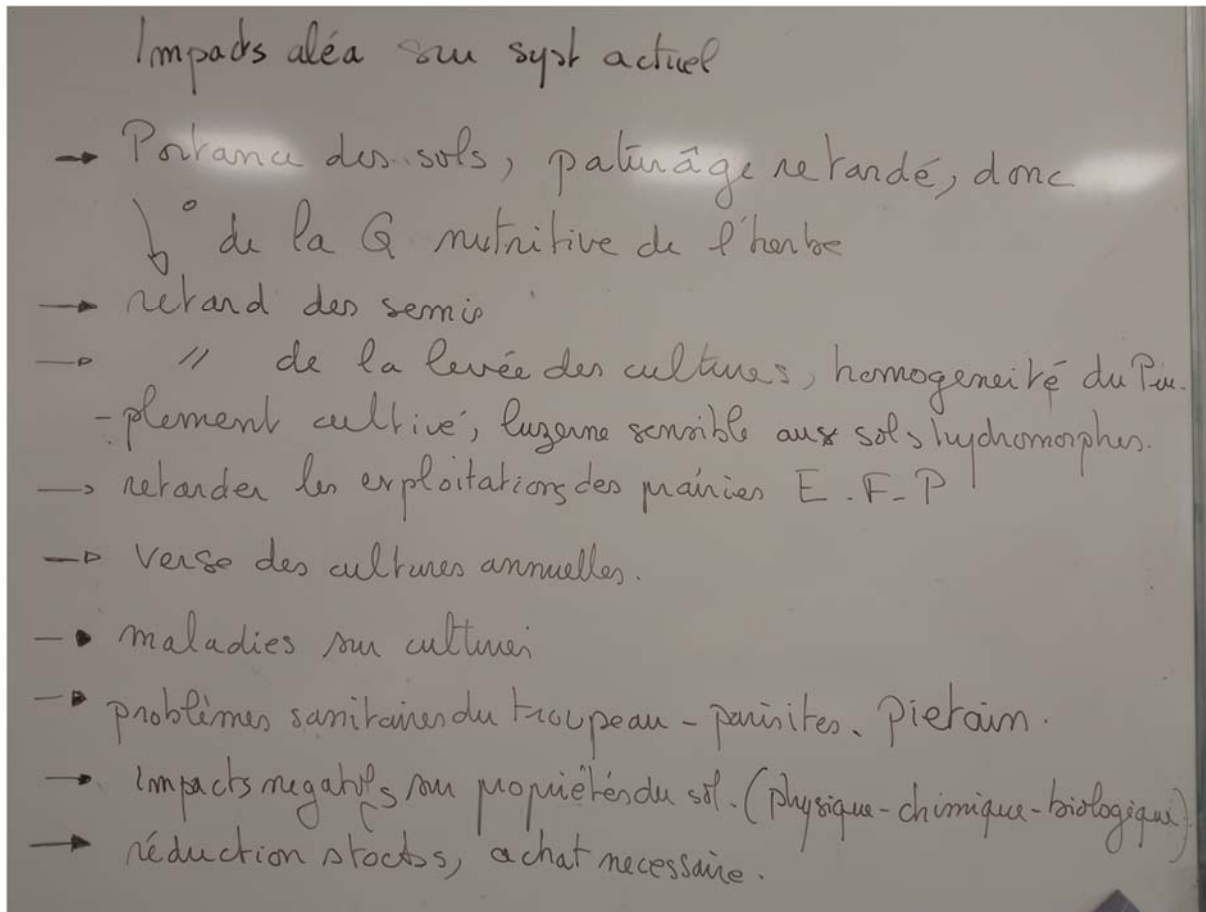 Impacts aléa sur syst actuel
→ Portance des sols, paturâge retardé, donc
↘ ° de la Q nutritive de l'herbe
→ retard des semis
→ " de la levée des cultures, homogeneité du Peu-
-plement cultivé, luzerne sensible aux sols hydromorphes.
→ retarder les exploitations des prairies E-F-P
→ verse des cultures annuelles.
→ maladies sur cultures
→ problèmes sanitaires du troupeau - parisites, pietain.
→ impacts negatifs sur propriétés du sol. (physique-chimique-biologique)
→ réduction stocks, achat necessaire.